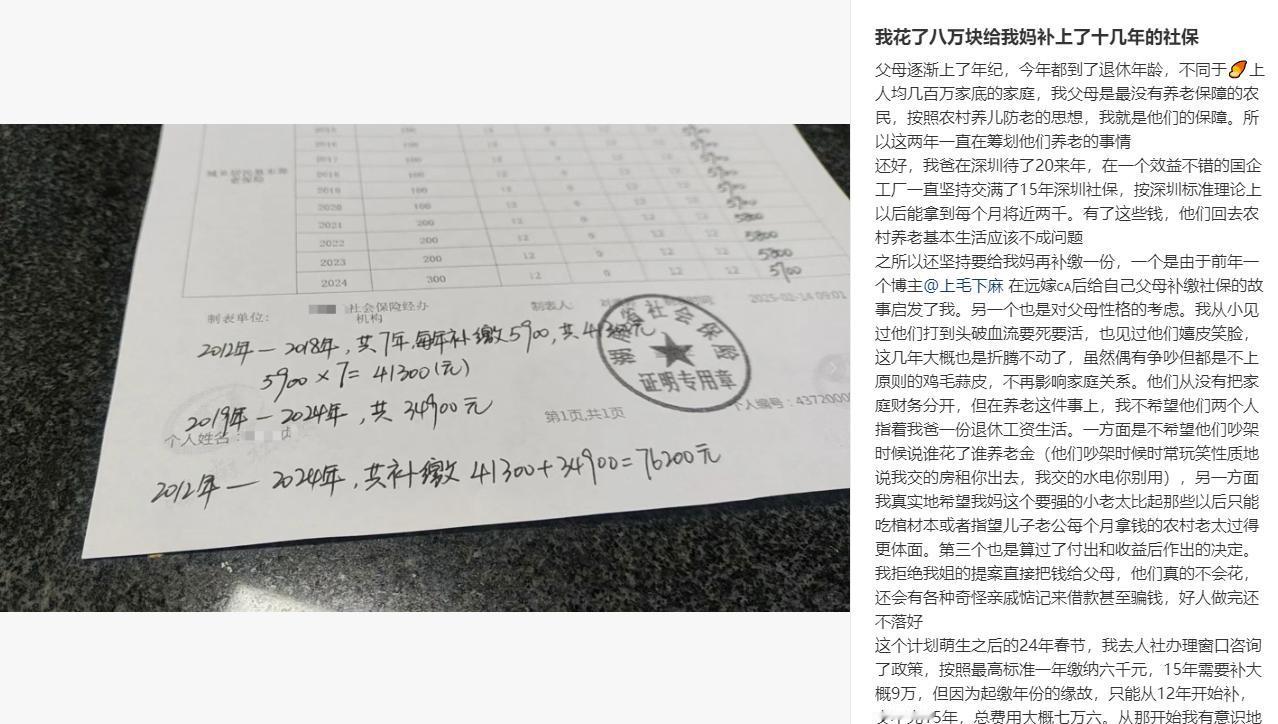 我花了八万块给我妈补上了十几年的社保
父母逐渐上了年纪，今年都到了退休年龄，不同于🍠上
人均几百万家底的家庭，我父母是最没有养老保障的农
民，按照农村养儿防老的思想，我就是他们的保障。所
以这两年一直在筹划他们养老的事情
还好，我爸在深圳待了20来年，在一个效益不错的国企
工厂一直坚持交满了15年深圳社保，按深圳标准理论上
以后能拿到每个月将近两千。有了这些钱，他们回去农
村养老基本生活应该不成问题
之所以还坚持要给我妈再补缴一份，一个是由于前年一
个博主@上毛下麻 在远嫁CA后给自己父母补缴社保的故
事启发了我。另一个也是对父母性格的考虑。我从小见
过他们打到头破血流要死要活，也见过他们嬉皮笑脸，
这几年大概也是折腾不动了，虽然偶有争吵但都是不上
原则的鸡毛蒜皮，不再影响家庭关系。他们从没有把家
庭财务分开，但在养老这件事上，我不希望他们两个人
指着我爸一份退休工资生活。一方面是不希望他们吵架
时候说谁花了谁养老金（他们吵架时候时常玩笑性质地
说我交的房租你出去，我交的水电你别用），另一方面
我真实地希望我妈这个要强的小老太比起那些以后只能
吃棺材本或者指望儿子老公每个月拿钱的农村老太过得
更体面。第三个也是算过了付出和收益后作出的决定。
我拒绝我姐的提案直接把钱给父母，他们真的不会花，
还会有各种奇怪亲戚惦记来借款甚至骗钱，好人做完还
不落好
这个计划萌生之后的24年春节，我去人社办理窗口咨询
了政策，按照最高标准一年缴纳六千元，15年需要补大
概9万，但因为起缴年份的缘故，只能从12年开始补，
15年，总费用大概七万六。从那开始我有意识地
2016 100 12 0 12 12
2017 100 12 0 12 12
2018 100 12 0 12 12 5900
2019 100 12 0 12 12 5900
2020 100 12 0 12 12 5900
2021 200 12 0 12 12 5800
2022 200 12 0 12 12 5800
2023 200 12 0 12 12 5800
2024 300 12 0 12 12 5700
制表单位： 社会保险经办 制表人: 2025-02-14 09:01
机构
2012年—2018年，共7年，每年补缴5900，共41300元
5900×7=41300(元)
2019年—2024年，共34900元
社会保险
证明专用章
第1页,共1页
个人编号：43720000
个人姓名：
2012年—2024年，共补缴41300+34900=76200元